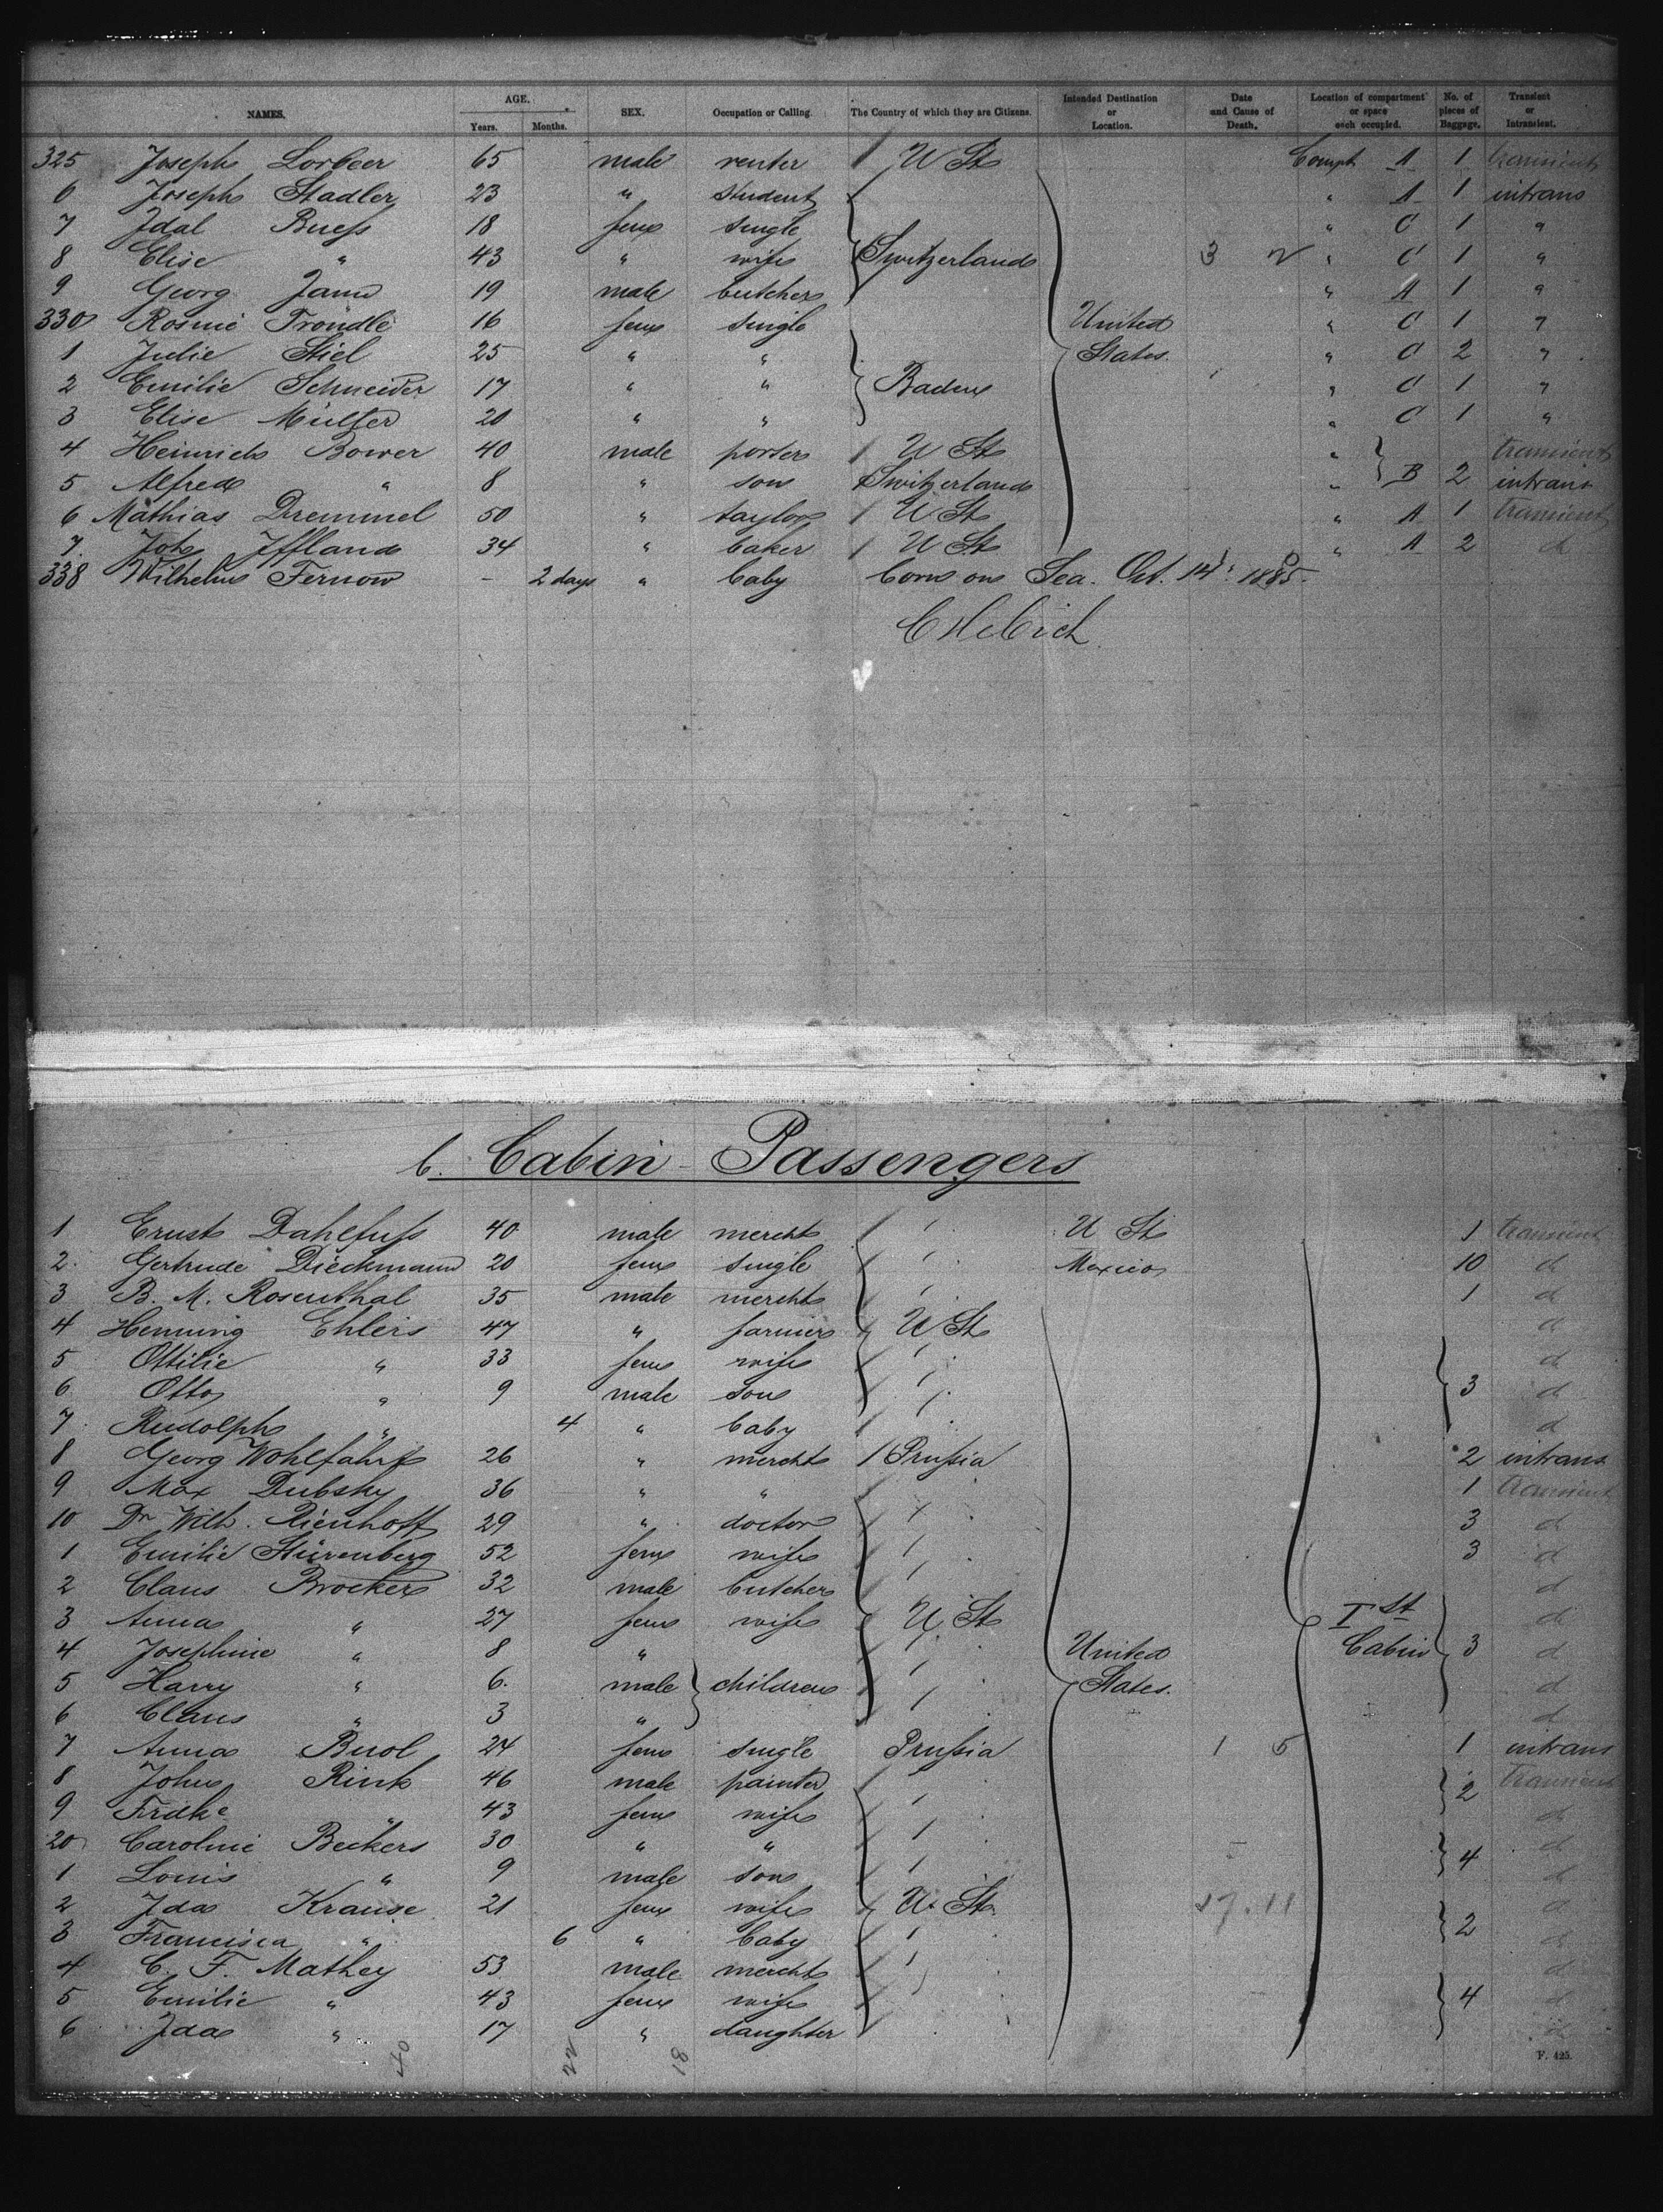 NAMES. AGE. Years. Months. SEX. Occupation or Calling. The Country of which they are Citizens. Intended Destination or Location. Date and Cause of Death. Location of compartment or space each occupied. No. of pieces of Baggage. Transient or Intransient.
325 Joseph Lorbeer 65 male renter / U St Comph A 1 transient
6 Joseph Stadler 23 " student " A 1 intrans
7 Idal Bueß 18 fem single " C 1 "
8 Elise " 43 " wife Switzerland 3 " C 1 "
9 Georg Jann 19 male butcher " A 1 "
330 Rosine Tröndle 16 fem single United " C 1 "
1 Julie Stiel 25 " " States. " C 2 "
2 Emilie Schneider 17 " " Baden " C 1 "
3 Elise Müller 20 " " " C 1 "
4 Heinrich Bower 40 male porter / U St " transient
5 Alfred " 8 " son Switzerland " B 2 intrans
6 Mathias Dremmel 50 " taylor / U St " A 1 transient
7. Joh Iffland 34 " baker / U St " A 2 d
338 Wilhelm Fernow - 2 days " baby born on Sea. Oct. 14th 1885.
b. Cabin-Passengers
1 Ernst Dahlfuß 40 male mercht U St 1 transient
2. Gertrude Dieckmann 20 fem single Mexico 10 d
3 B. M. Rosenthal 35 male mercht 1 d
4 Henning Ehlers 47 " farmer U St d
5 Ottilie " 33 fem wife d
6 Otto " 9 male son 3 d
7. Rudolph " 4 " baby d
8 Georg Wohlfahrt 26 " mercht / Prußia 2 intrans
9 Max Dubsky 36 " " 1 transient
10 Dr Wilh. Rienhoff 29 " doctor 3 d
1 Emilie Stürenberg 52 fem wife 3 d
2 Claus Brocker 32 male butcher d
3 Anna " 27 fem wife U. St Ist d
4 Josephine " 8 " United Cabin 3 d
5 Harry " 6. male children States. d
6 Claus " 3 " d
7 Anna Buol 24 fem single Prußia 1 5 1 intrans
8 John Rink 46 male painter 2 transient
9 Fridke " 43 fem wife d
20 Caroline Beckers 30 " " d
1 Louis " 9 male son 4 d
2 Ida Krause 21 fem wife U. St. 27.11 d
3 Francisca " 6 " baby 2 d
4 C. F. Mathey 53 male mercht d
5 Emilie " 43 fem wife 4 d
6 Ida " 17 " daughter d
F. 425.